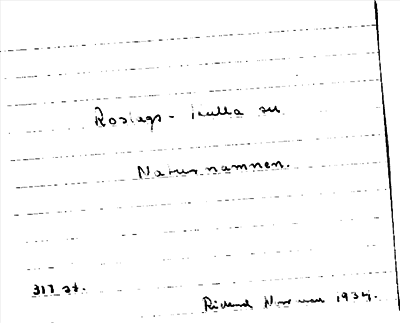 Roslags-Kulla sn
Naturnamnen.
317 st.
Rickard 1934.